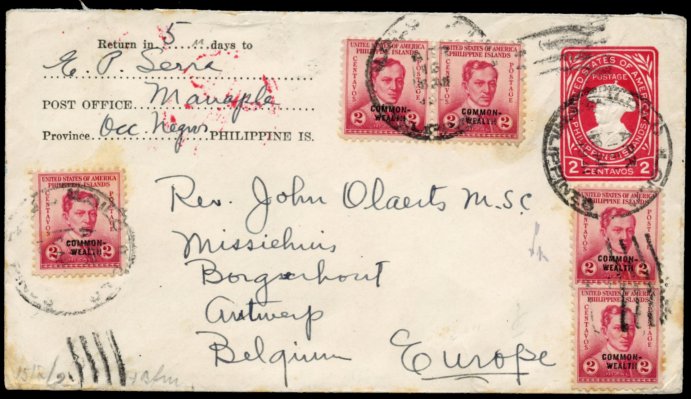 Return in 5 days to
E. P. Serra
POST OFFICE Manapla
Province Occ Negros PHILIPPINE IS.
UNITED STATES OF AMERICA
PHILIPPINE ISLANDS
CENTAVOS POSTAGE
COMMON-
WEALTH
2 2
UNITED STATES OF AMERICA
PHILIPPINE ISLANDS
CENTAVOS POSTAGE
COMMON-
WEALTH
2 2
UNITED STATES OF AMERICA
POSTAGE
PHILIPPINE ISLANDS
2 CENTAVOS 2
UNITED STATES OF AMERICA
PHILIPPINE ISLANDS
CENTAVOS
COMMON-
WEALTH
2 2
Rev. John Olaerts M.S.C.
Missiehuis
Borgerhout
Antwerp
Belgium Europe
UNITED STATES OF AMERICA
PHILIPPINE ISLANDS
CENTAVOS POSTAGE
COMMON-
WEALTH
2 2
UNITED STATES OF AMERICA
PHILIPPINE ISLANDS
CENTAVOS POSTAGE
COMMON-
WEALTH
2 2